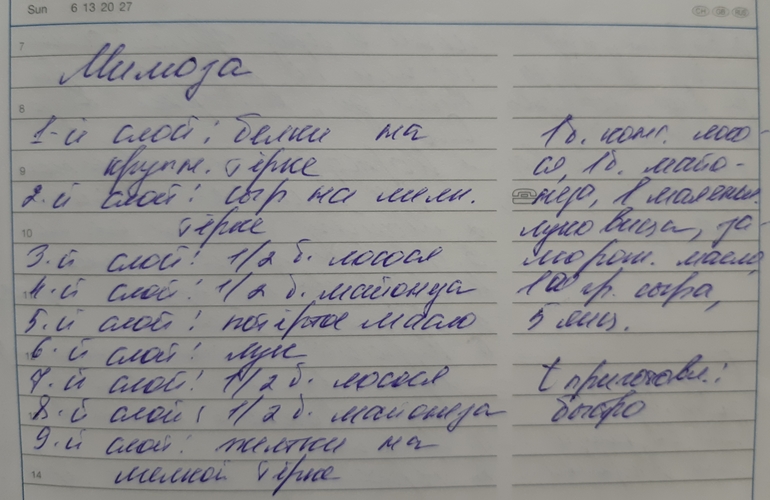 Sun 6 13 20 27
CH GB
7
Мимоза
8
1-й слой: белки на
9 крупн. тёрке
2-й слой: сыр на мелк.
10 тёрке
3-й слой: 1/2 б. лосося
4-й слой: 1/2 б. майонеза
5-й слой: потёртое масло
6-й слой: лук
7-й слой: 1/2 б. лосося
8-й слой: 1/2 б. майонеза
9-й слой: желтки на
14 мелкой тёрке
1 б. конс. лосо-
ся, 1 б. майо-
неза, 1 маленьк.
луковица, за-
морож. масло,
100 гр. сыра,
5 яиц.
t приготовл.:
быстро